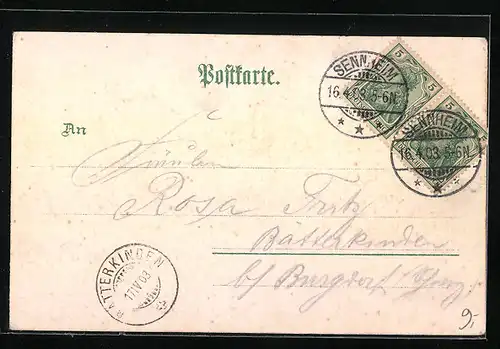 Postkarte.
SENNHEIM
16.4.03.5-6N.
5
5
SENNHEIM
16.4.03.5-6N.
An
Fräulein
Rosa Fritz
Bätterkinden
b/ Burgdorf Schweiz
BÄTTERKINDEN
17.IV.03
9.-